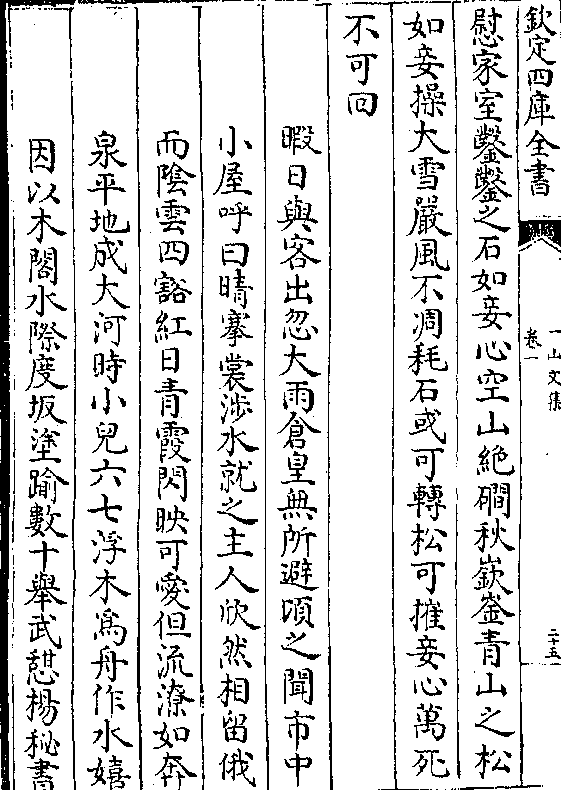 欽定四庫全書
一山文集
卷一
二十五
慰家室鑿鑿之石如妾心空山絶磵秋嶔崟青山之松
如妾操大雪嚴風不凋耗石或可轉松可摧妾心萬死
不可回
暇日與客出忽大雨倉皇無所避頃之聞市中
小屋呼曰晴搴裳涉水就之主人欣然相留俄
而陰雲四豁紅日青霞閃映可愛但流潦如奔
泉平地成大河時小兒六七浮木為舟作水嬉
因以木閣水際度坂塗踰數十舉武憇楊秘書